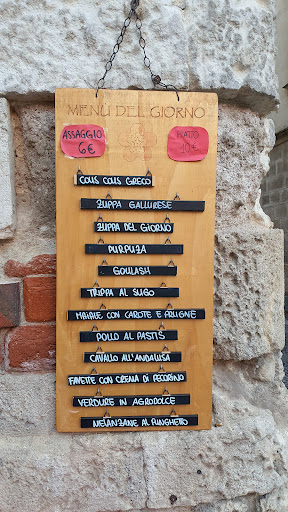 MENÙ DEL GIORNO
ASSAGGIO
6€
PIATTO
10€
COUS COUS GRECO
ZUPPA GALLURESE
ZUPPA DEL GIORNO
PURPUZA
GOULASH
TRIPPA AL SUGO
MAIALE CON CAROTE E PRUGNE
POLLO AL PASTIS
CAVALLO ALL'ANDALUSA
FAVETTE CON CREMA DI PECORINO
VERDURE IN AGRODOLCE
MELANZANE AL FUNGHETTO